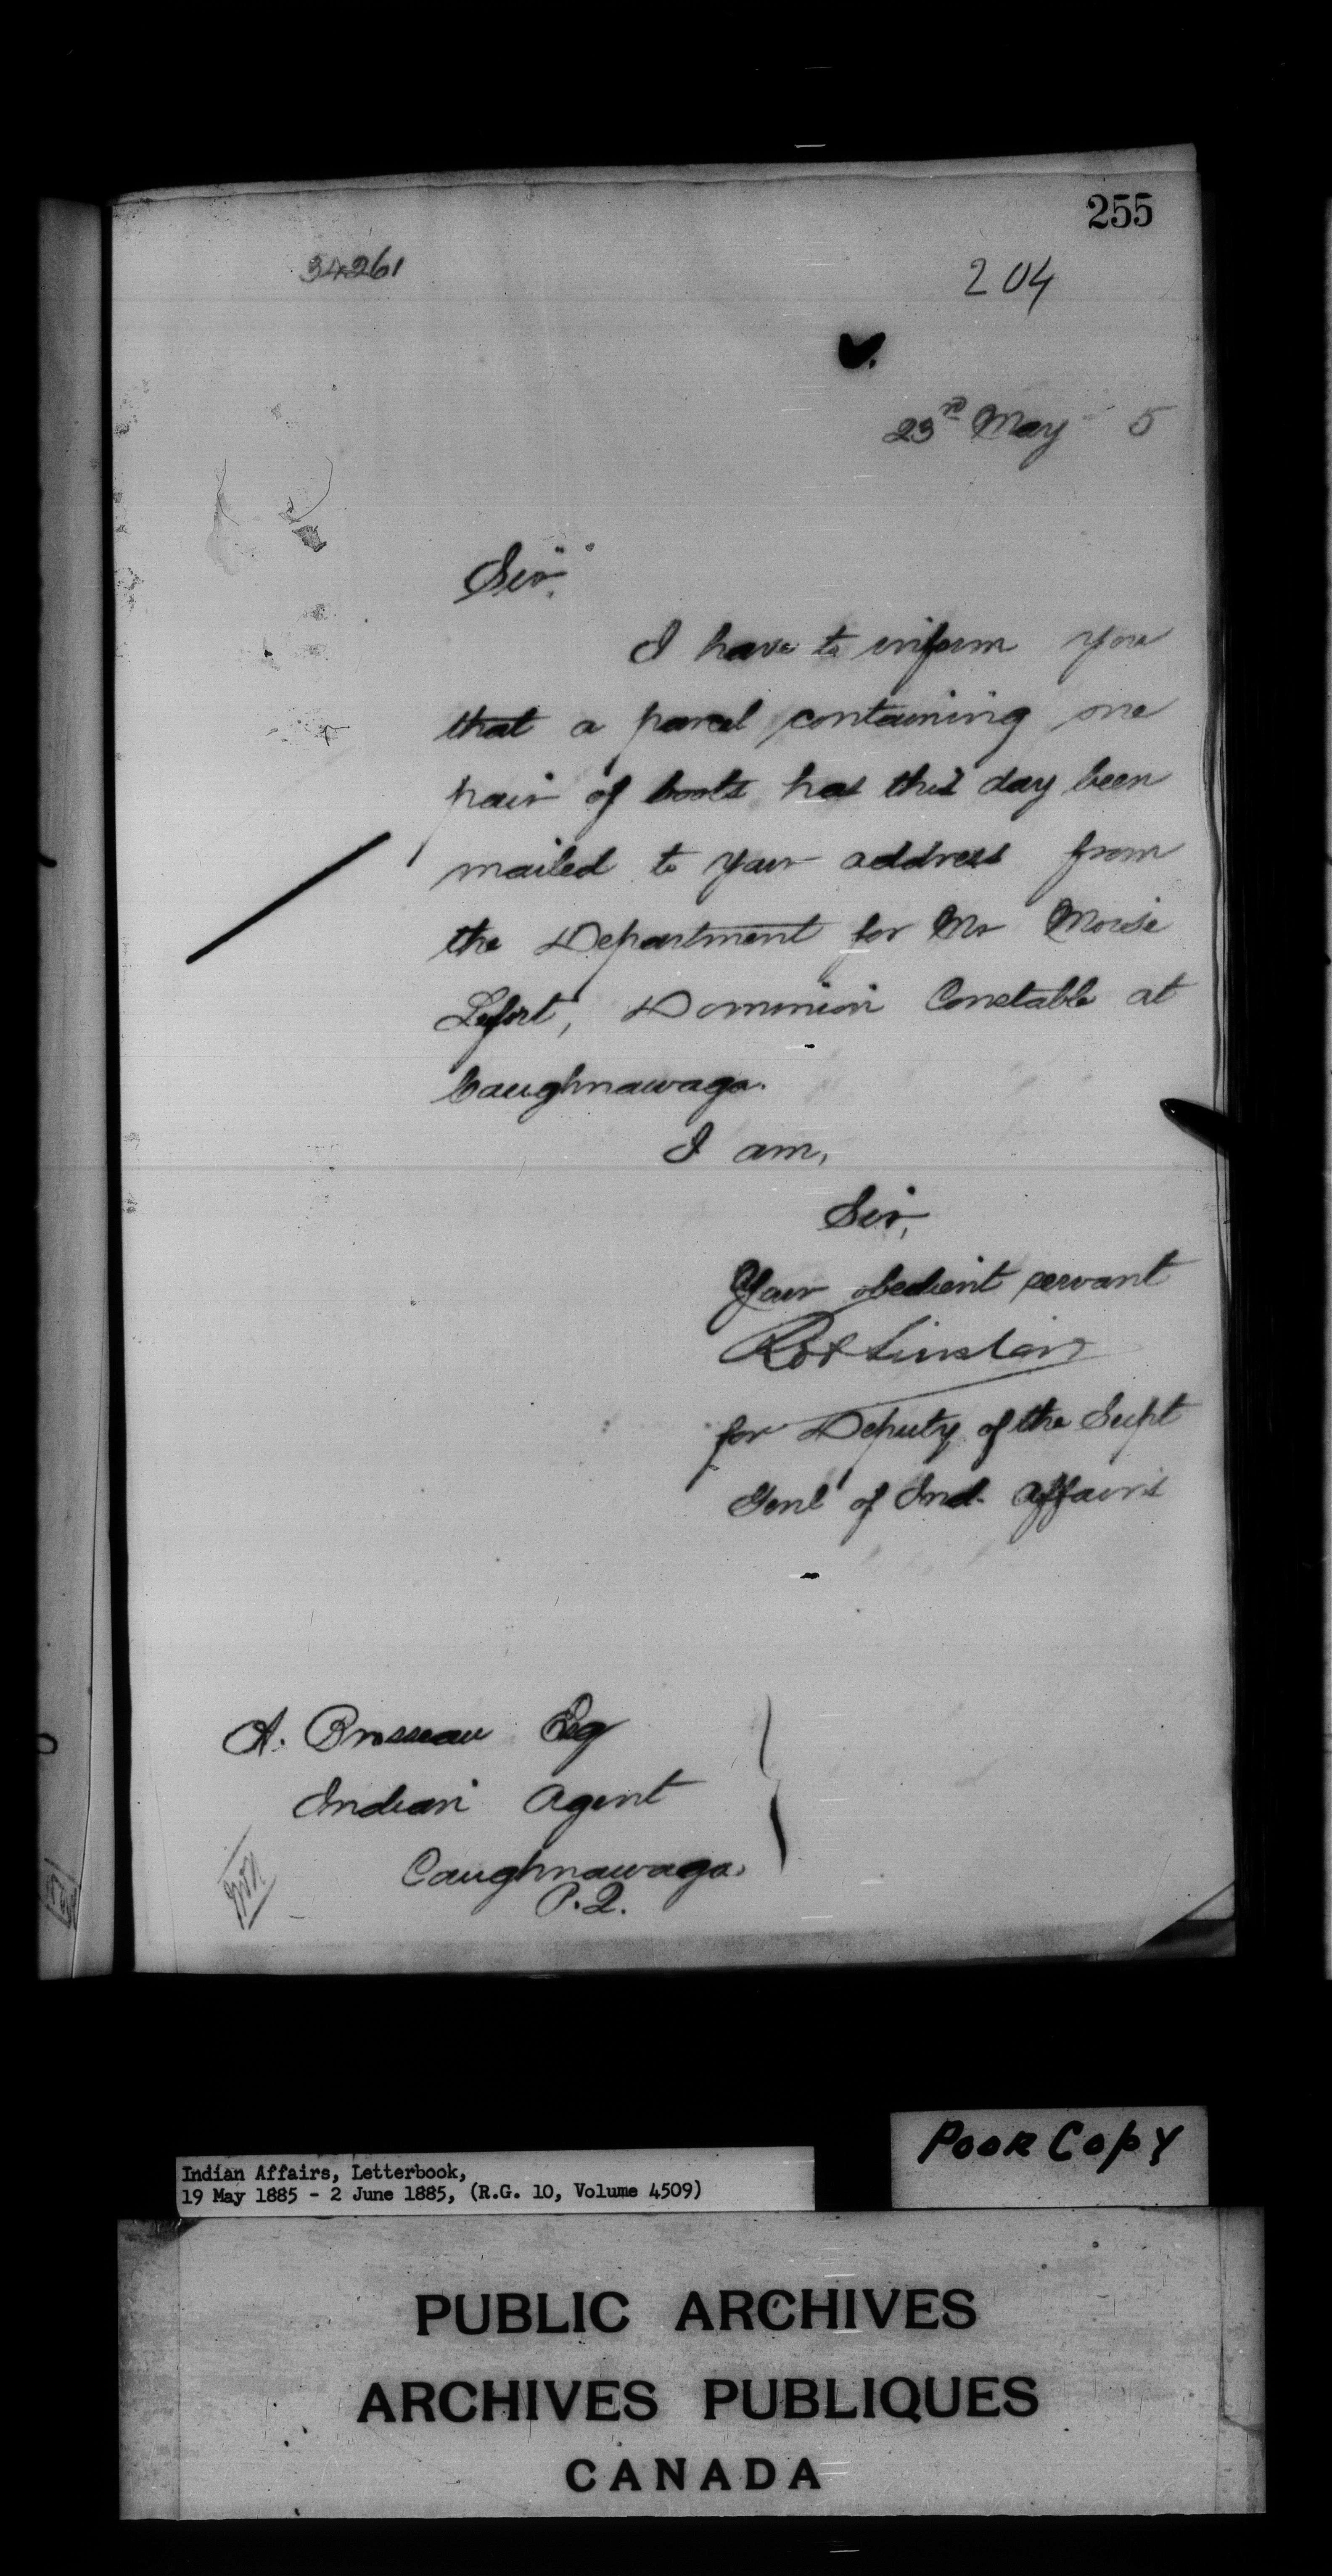 255
34261
204
23rd May 5
Sir,
I have to inform you
that a parcel containing one
pair of boots has this day been
mailed to your address from
the Department for Mr Moise
Lefort, Dominion Constable at
Caughnawaga.
I am,
Sir,
Your obedient servant
Rot Sinclair
for Deputy of the Supt
Genl of Ind. Affairs
A. Brosseau Esq
Indian Agent
Caughnawaga.
P.Q.
Poor Copy
Indian Affairs, Letterbook,
19 May 1885 - 2 June 1885, (R.G. 10, Volume 4509)
PUBLIC ARCHIVES
ARCHIVES PUBLIQUES
CANADA